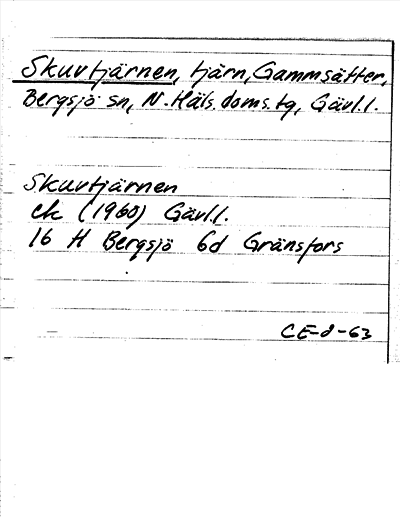 Skuvtjärnen, tjärn, Gammsätter,
Bergsjö sn, N. Häls. doms. tg, Gävl. l.
Skuvtjärnen
ek (1960) Gävl. l.
16 H Bergsjö 6d Gränsfors
CE-d-63